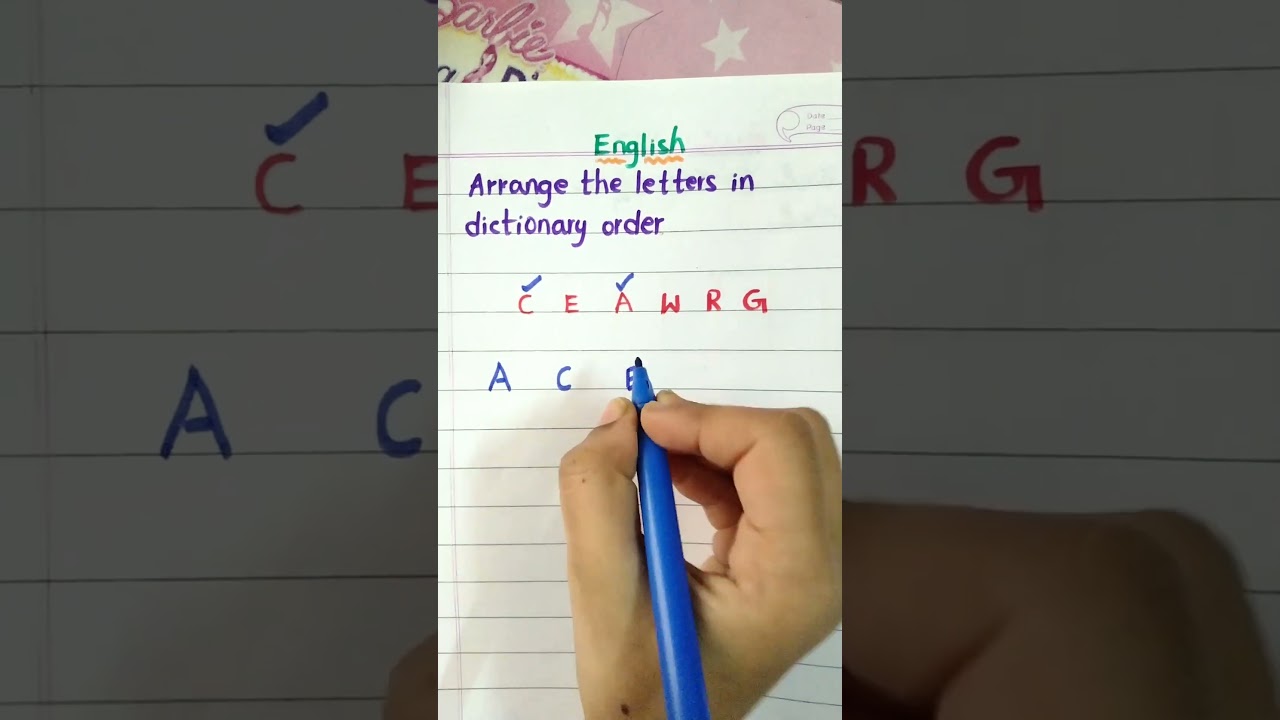 Barbie
Date
Page
English
Arrange the letters in
dictionary order
C E A W R G
A C E